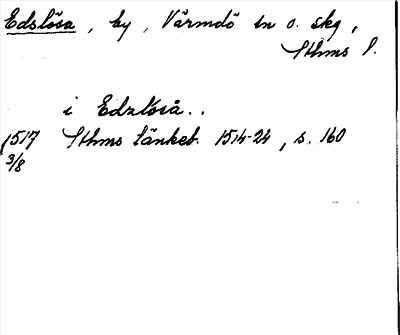 Edslösa, by, Värmdö sn o. skg,
Sthms l.
i Edzlösa..
1517 Sthms tänkeb. 1514-24, s. 160
3/8